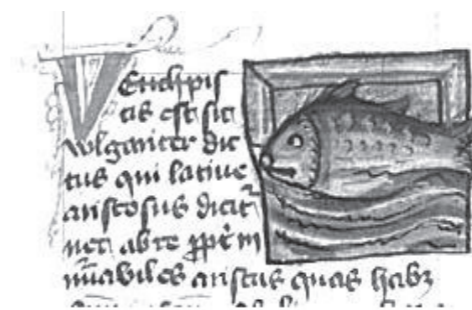 cis est sic
wlgariter dic
tus qui latine
aristosus dicit̄
nec ab re ꝓpt̄ in
nūabiles aristas quas habꝫ